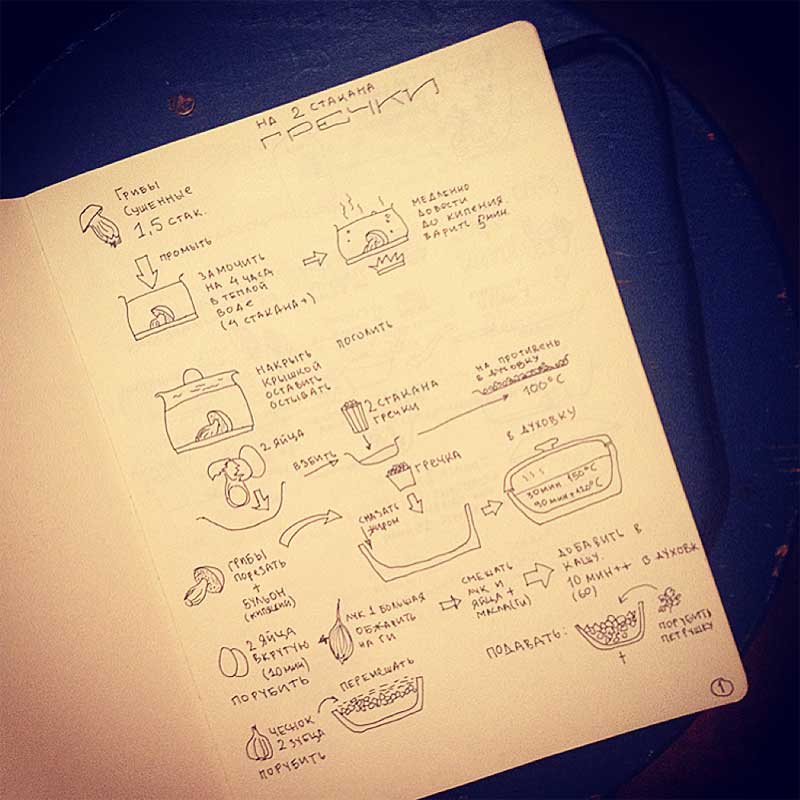 НА 2 СТАКАНА
ГРЕЧКИ
ГРИБЫ
СУШЕННЫЕ
1,5 СТАК.
ПРОМЫТЬ
ЗАМОЧИТЬ
НА 4 ЧАСА
В ТЕПЛОЙ
ВОДЕ
(4 СТАКАНА+)
МЕДЛЕННО
ДОВОСТИ
ДО КИПЕНИЯ.
ВАРИТЬ 5МИН.
НАКРЫТЬ
КРЫШКОЙ
ОСТАВИТЬ
ОСТЫВАТЬ
2 ЯЙЦА
ВЗБИТЬ
2 СТАКАНА
ГРЕЧКИ
НА ПРОТИВЕНЬ
В ДУХОВКУ
100°C
ГРЕЧКА
СМАЗАТЬ
ЖИРОМ
В ДУХОВКУ
30МИН 150°C
ГРИБЫ
ПОРЕЗАТЬ
+
БУЛЬОН
(КИПЯЩИЙ)
2 ЯЙЦА
ВКРУТУЮ
(10МИН)
ПОРУБИТЬ
ЛУК 1 БОЛЬШАЯ
ОБЖАРИТЬ
НА ГИ
СМЕШАТЬ
ЛУК И
ЯЙЦА +
МАСЛА(ГИ)
ДОБАВИТЬ В
КАШУ.
10 МИН++ В ДУХОВК
(60)
ЧЕСНОК
2 ЗУБЦА
ПОРУБИТЬ
ПЕРЕМЕШАТЬ
ПОДАВАТЬ:
+
ПОРУБИТЬ
ПЕТРУШКУ
1